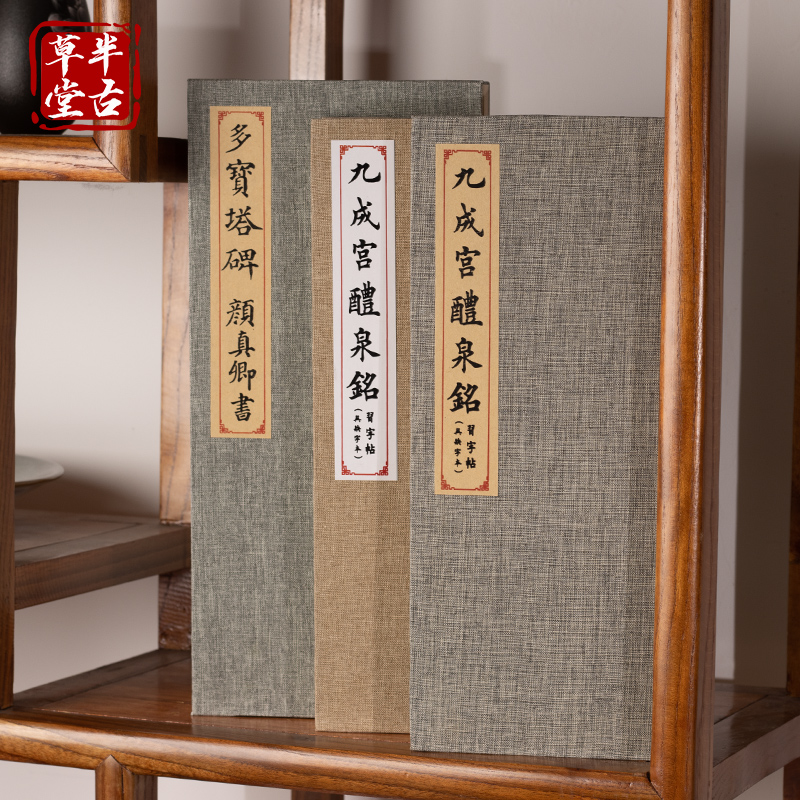 半古
草堂
多寶塔碑 顏真卿書
九成宮醴泉銘
習字帖
(無損字本)
九成宮醴泉銘
習字帖
(無損字本)